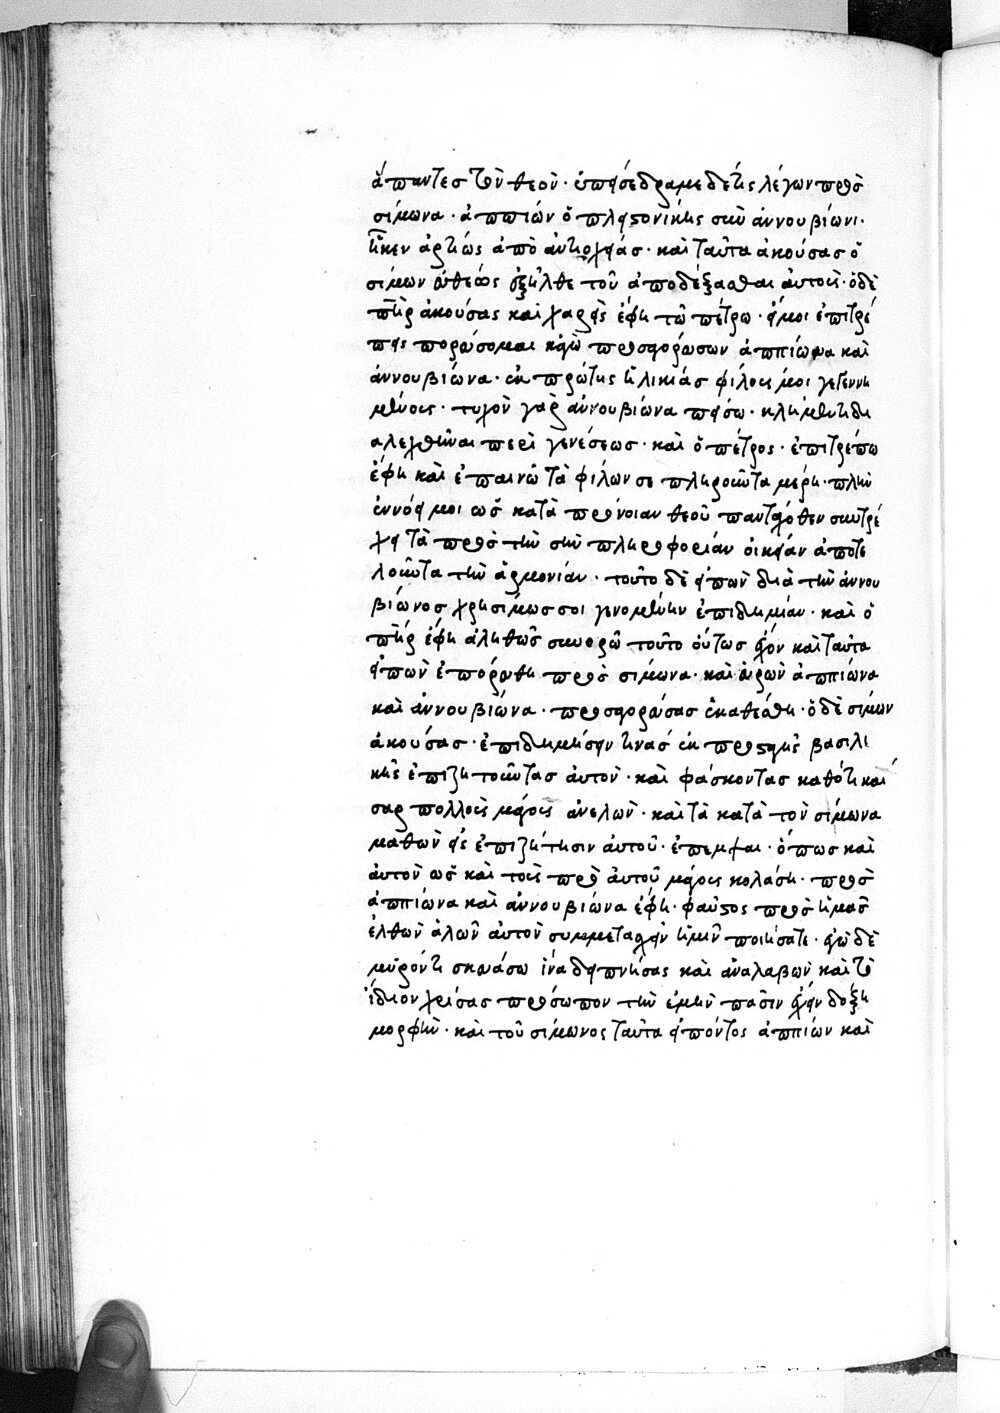 ἅπαντες τὸν θεόν· ὑπεισέδραμε δέ τις λέγων πρὸς
σίμωνα· ἀππιών ὁ πλειστονίκης σὺν ἀννουβίωνι·
ἧκεν ἀρτίως ἀπὸ ἀντιοχείας· καὶ ταῦτα ἀκούσας ὁ
σίμων εὐθέως ἐξῆλθε τοῦ ἀποδέξασθαι αὐτούς· ὁ δὲ
πηρ ἀκούσας καὶ χαρεὶς ἔφη τῶ πέτρω· εἴ μοι ἐπιτρέ
πεις πορεύσομαι κἀγὼ προσαγορεύσων ἀππίωνα καὶ
ἀννουβίωνα· ἐκ πρώτης ἡλικίας φίλους μοι γεγεννη
μένους· τυχὸν γὰρ ἀννουβίωνα πείσω· κλήμεντι δι
αλεχθῆναι περὶ γενέσεως· καὶ ὁ πέτρος· ἐπιτρέπω
ἔφη καὶ ἐπαινῶ τὰ φίλων σε πληροῦντα μέρη· πλὴν
ἐννόει μοι ὡς κατὰ πρόνοιαν θεοῦ πανταχόθεν συντρέ
χει τὰ πρὸς τὴν σὴν πληροφορίαν οἰκείαν ἀποτε
λοῦντα τὴν ἁρμονίαν· τοῦτο δὲ εἰπὼν διὰ τὴν ἀννου
βίωνος χρησίμως σοι γενομένην ἐπιδημίαν· καὶ ὁ
πηρ ἔφη ἀληθῶς συνορῶ τοῦτο οὕτως ἔχον καὶ ταῦτα
εἰπὼν ἐπορεύθη πρὸς σίμωνα· καὶ εὑρὼν ἀππιώνα
καὶ ἀννουβιώνα· προσαγορεύσας ἐκαθέσθη· ὁ δὲ σίμων
ἀκούσας· ἐπιδημήσειν τινὰς ἐκ προστάξεως βασιλι
κῆς ἐπιζητοῦντας αὐτὸν· καὶ φάσκοντας καθότι καί
σαρ πολλοὺς μάγους ἀνελὼν· καὶ τὰ κατὰ τὸν σίμωνα
μαθὼν εἰς ἐπιζήτησιν αὐτοῦ· ἔπεμψαι· ὅπως καὶ
αὐτὸν ὡς καὶ τοὺς πρὸ αὐτοῦ μάγους κολάση· πρὸς
ἀππιώνα καὶ ἀννουβιώνα ἔφη· φαῦστος πρὸς ἡμᾶς
ἐλθὼν ἁλῶν αὐτὸν συμμεταλαβεῖν ἡμῖν ποιήσατε· ἐγὼ δὲ
μύρον τι σκευάσω ἵνα δειπνήσας καὶ ἀναλαβὼν καὶ τὸ
ἴδιον χρίσας πρόσωπον τὴν ἐμὴν πᾶσιν ἔχειν δόξη
μορφήν· καὶ τοῦ σίμωνος ταῦτα εἰπόντος ἀππιών καὶ